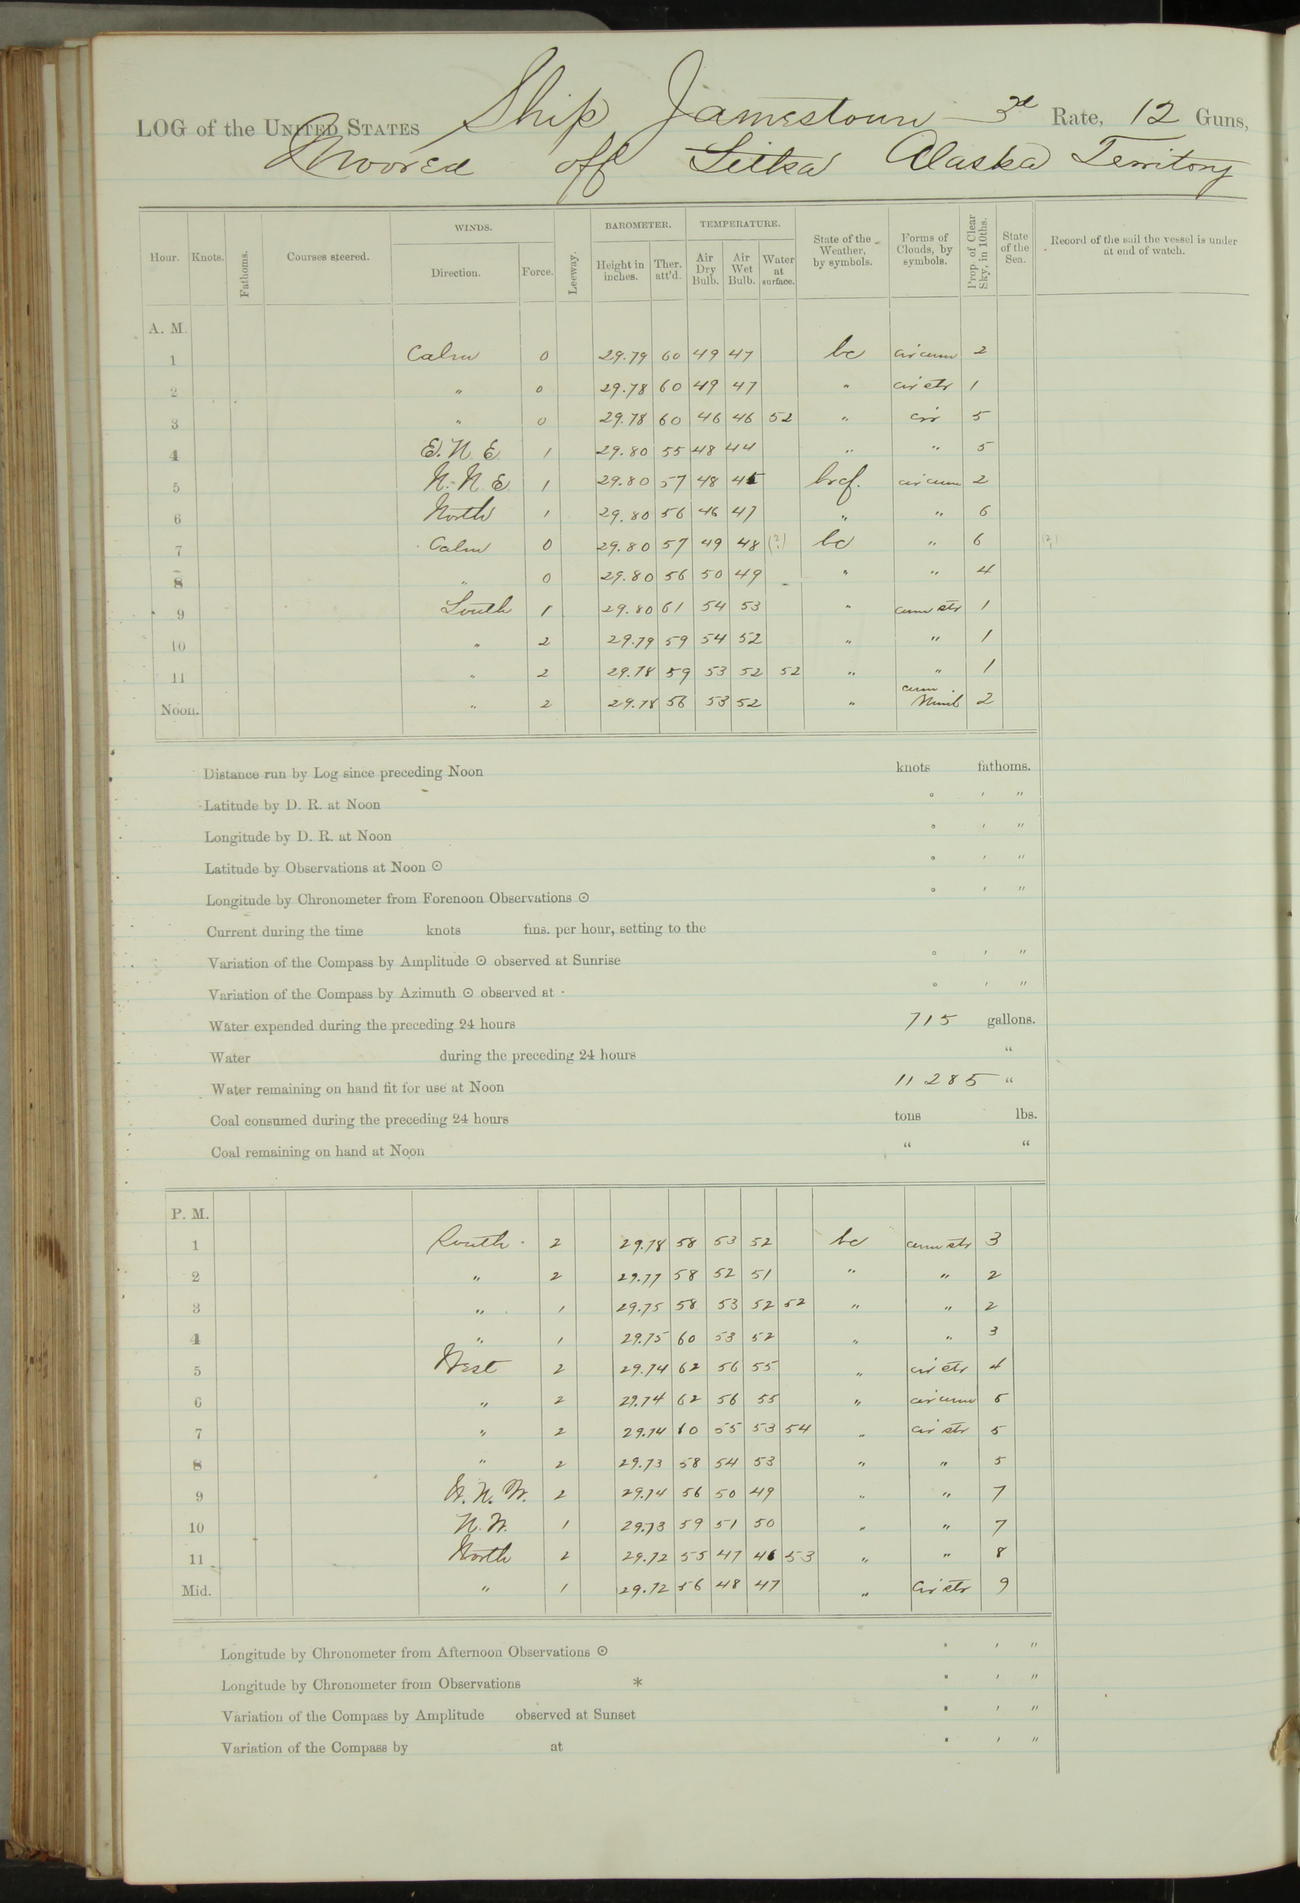 LOG of the UNITED STATES Ship Jamestown 3d Rate, 12 Guns,
Moored off Sitka Alaska Territory
Hour. Knots. Fathoms. Courses steered. WINDS. Direction. Force. Leeway. BAROMETER. Height in inches. Ther. att'd. TEMPERATURE. Air Dry Bulb. Air Wet Bulb. Water at surface. State of the Weather, by symbols. Forms of Clouds, by symbols. Prop. of Clear Sky, in 10ths. State of the Sea. Record of the sail the vessel is under at end of watch.
A. M.
1 Calm 0 29.79 60 49 47 bc cir cum 2
2 " 0 29.78 60 49 47 " cir str 1
3 " 0 29.78 60 46 46 52 " cir 5
4 E. N. E. 1 29.80 55 48 44 " " 5
5 N. N. E. 1 29.80 57 48 45 bcf. cir cum 2
6 North 1 29.80 56 46 47 " " 6
7 Calm 0 29.80 57 49 48 (?) bc " 6 (?)
8 " 0 29.80 56 50 49 " " 4
9 South 1 29.80 61 54 53 " cum str 1
10 " 2 29.79 59 54 52 " " 1
11 " 2 29.78 59 53 52 52 " " 1
Noon. " 2 29.78 56 53 52 " cum Nimb 2
Distance run by Log since preceding Noon knots fathoms.
Latitude by D. R. at Noon ° ' "
Longitude by D. R. at Noon ° ' "
Latitude by Observations at Noon ⊙ ° ' "
Longitude by Chronometer from Forenoon Observations ⊙ ° ' "
Current during the time knots fms. per hour, setting to the
Variation of the Compass by Amplitude ⊙ observed at Sunrise ° ' "
Variation of the Compass by Azimuth ⊙ observed at ° ' "
Water expended during the preceding 24 hours 715 gallons.
Water during the preceding 24 hours "
Water remaining on hand fit for use at Noon 11285 "
Coal consumed during the preceding 24 hours tons lbs.
Coal remaining on hand at Noon " "
P. M.
1 South 2 29.78 58 53 52 bc cum str 3
2 " 2 29.77 58 52 51 " " 2
3 " 1 29.75 58 53 52 52 " " 2
4 " 1 29.75 60 53 52 " " 3
5 West 2 29.74 62 56 55 " cir str 4
6 " 2 29.74 62 56 55 " cir cum 5
7 " 2 29.74 60 55 53 54 " cir str 5
8 " 2 29.73 58 54 53 " " 5
9 W. N. W. 2 29.74 56 50 49 " " 7
10 N. W. 1 29.73 59 51 50 " " 7
11 North 2 29.72 55 47 46 53 " " 8
Mid. " 1 29.72 56 48 47 " Cir str 9
Longitude by Chronometer from Afternoon Observations ⊙ ° ' "
Longitude by Chronometer from Observations * ° ' "
Variation of the Compass by Amplitude observed at Sunset ° ' "
Variation of the Compass by at ° ' "